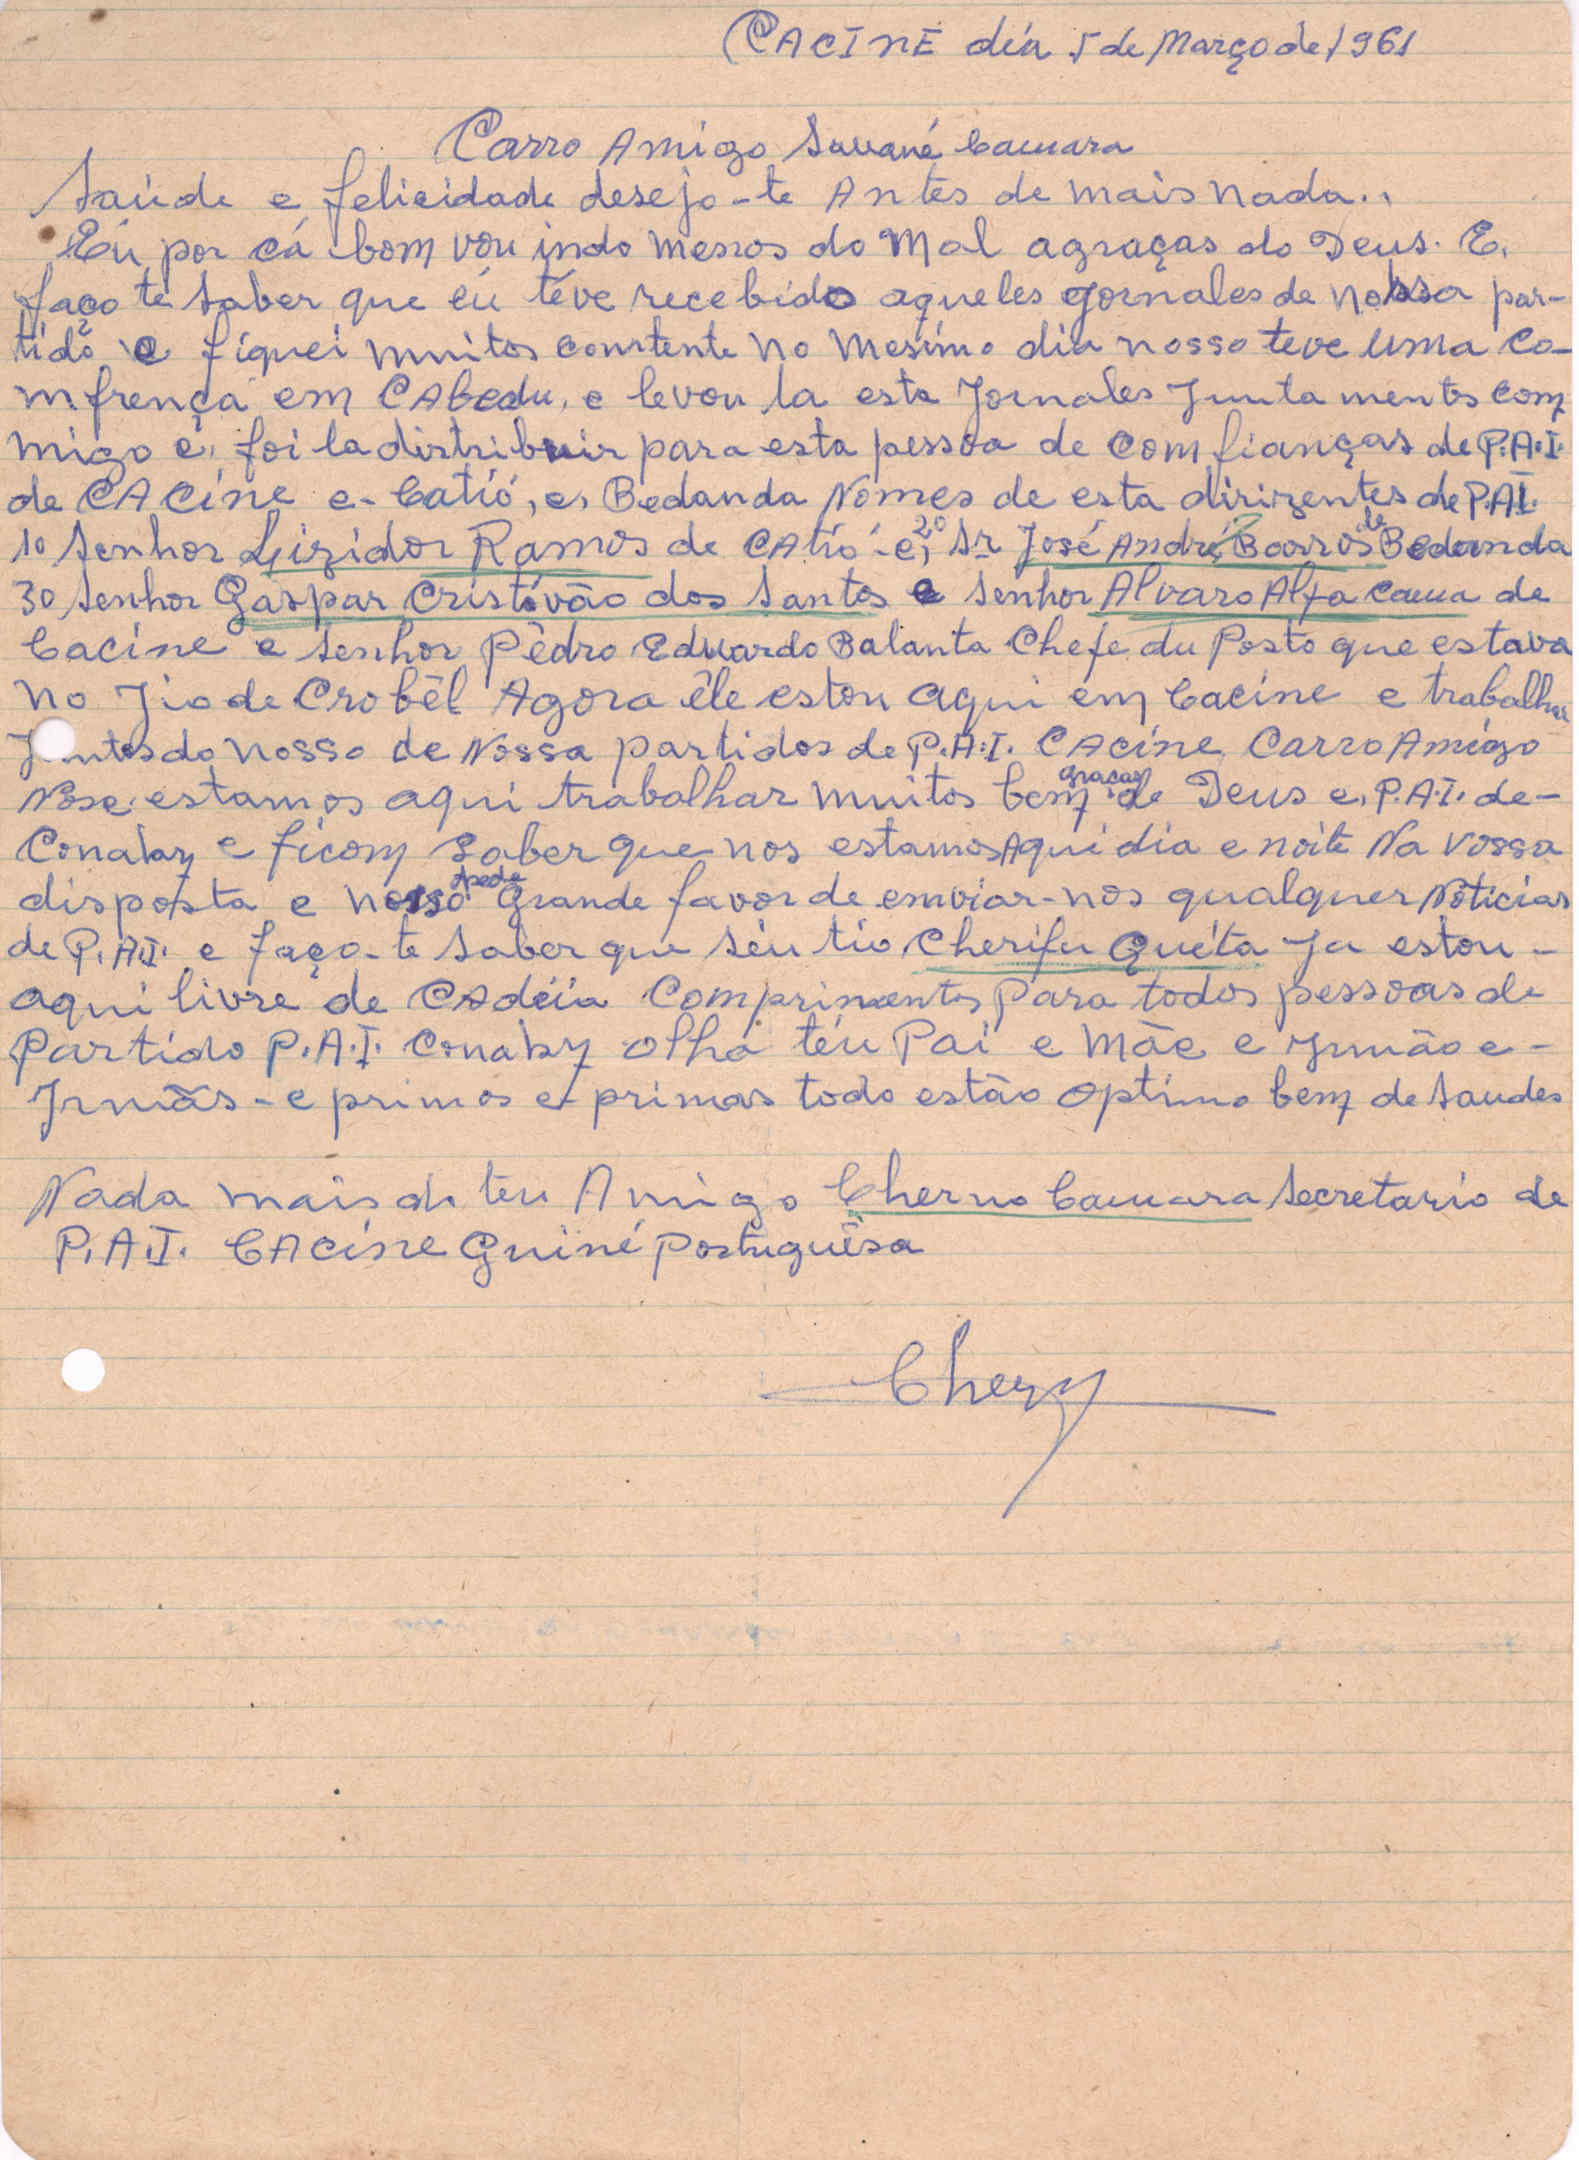 CACINE dia 5 de Março de 1961
Carro Amigo Suvané Camara
Saúde e felicidade desejo-te Antes de mais nada..
Eú por cá bom vou indo menos do Mal agraças do Deus. E.
faço te saber que eú téve recebido aqueles gornales de nossa par-
tido e fiquei muitos comtente no mesimo dia nosso teve uma co-
mfrença em CAbedu, e levou la esta Jornales Junta mentes com
migo e, foi la distribuir para esta pessoa de comfianças de P.A.I.
de CACine e-Catió, e, Bedanda Nomes de esta dirizentes de P.A.I.
1o Senhor Lizidor Ramos de CAtió-e, 2o Sr José André Barros de Bedanda
3o Senhor Gaspar Cristóvão dos Santos e Senhor Alvaro Alfa Cama de
Cacine e Senhor Pèdro Eduardo Balanta Chefe du Posto que estava
no Jio de Crobêl Agora êle estou aqui em Cacine e trabalhar
Juntos do nosso de Nossa partidos de P.A.I. CACine Carro Amigo
Nose estamos aqui trabalhar muitos bem graças de Deus e, P.A.I. de-
Conaky e ficom saber que nos estamos Aqui dia e noite Na vossa
disposta e nosso pede Grande favor de emviar-nos qualquer Noticias
de P.A.I. e faço-te saber que séu tio Cherifu Quéta Ja estou-
aqui livre de CAdéia Comprimentos para todos pessoas de
Partido P.A.I. Conaky olha téu Pai e Mãe e Irmão e-
Irmãs-e primos e primas todo estão optimo bem de saudes
Nada mais do teu Amigo Cherno Camara Secretario de
P.A.I. CACine Guiné Portuguêsa